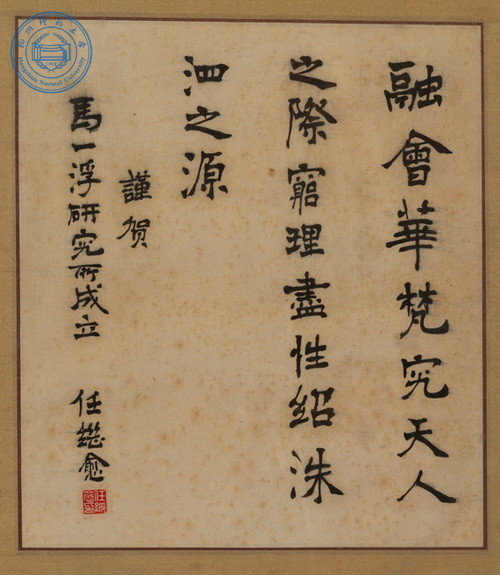 融會華梵究天人
之際窮理盡性紹洙
泗之源
謹贺
馬一浮研究所成立
任繼愈
杭州师范大学
Hangzhou Normal University